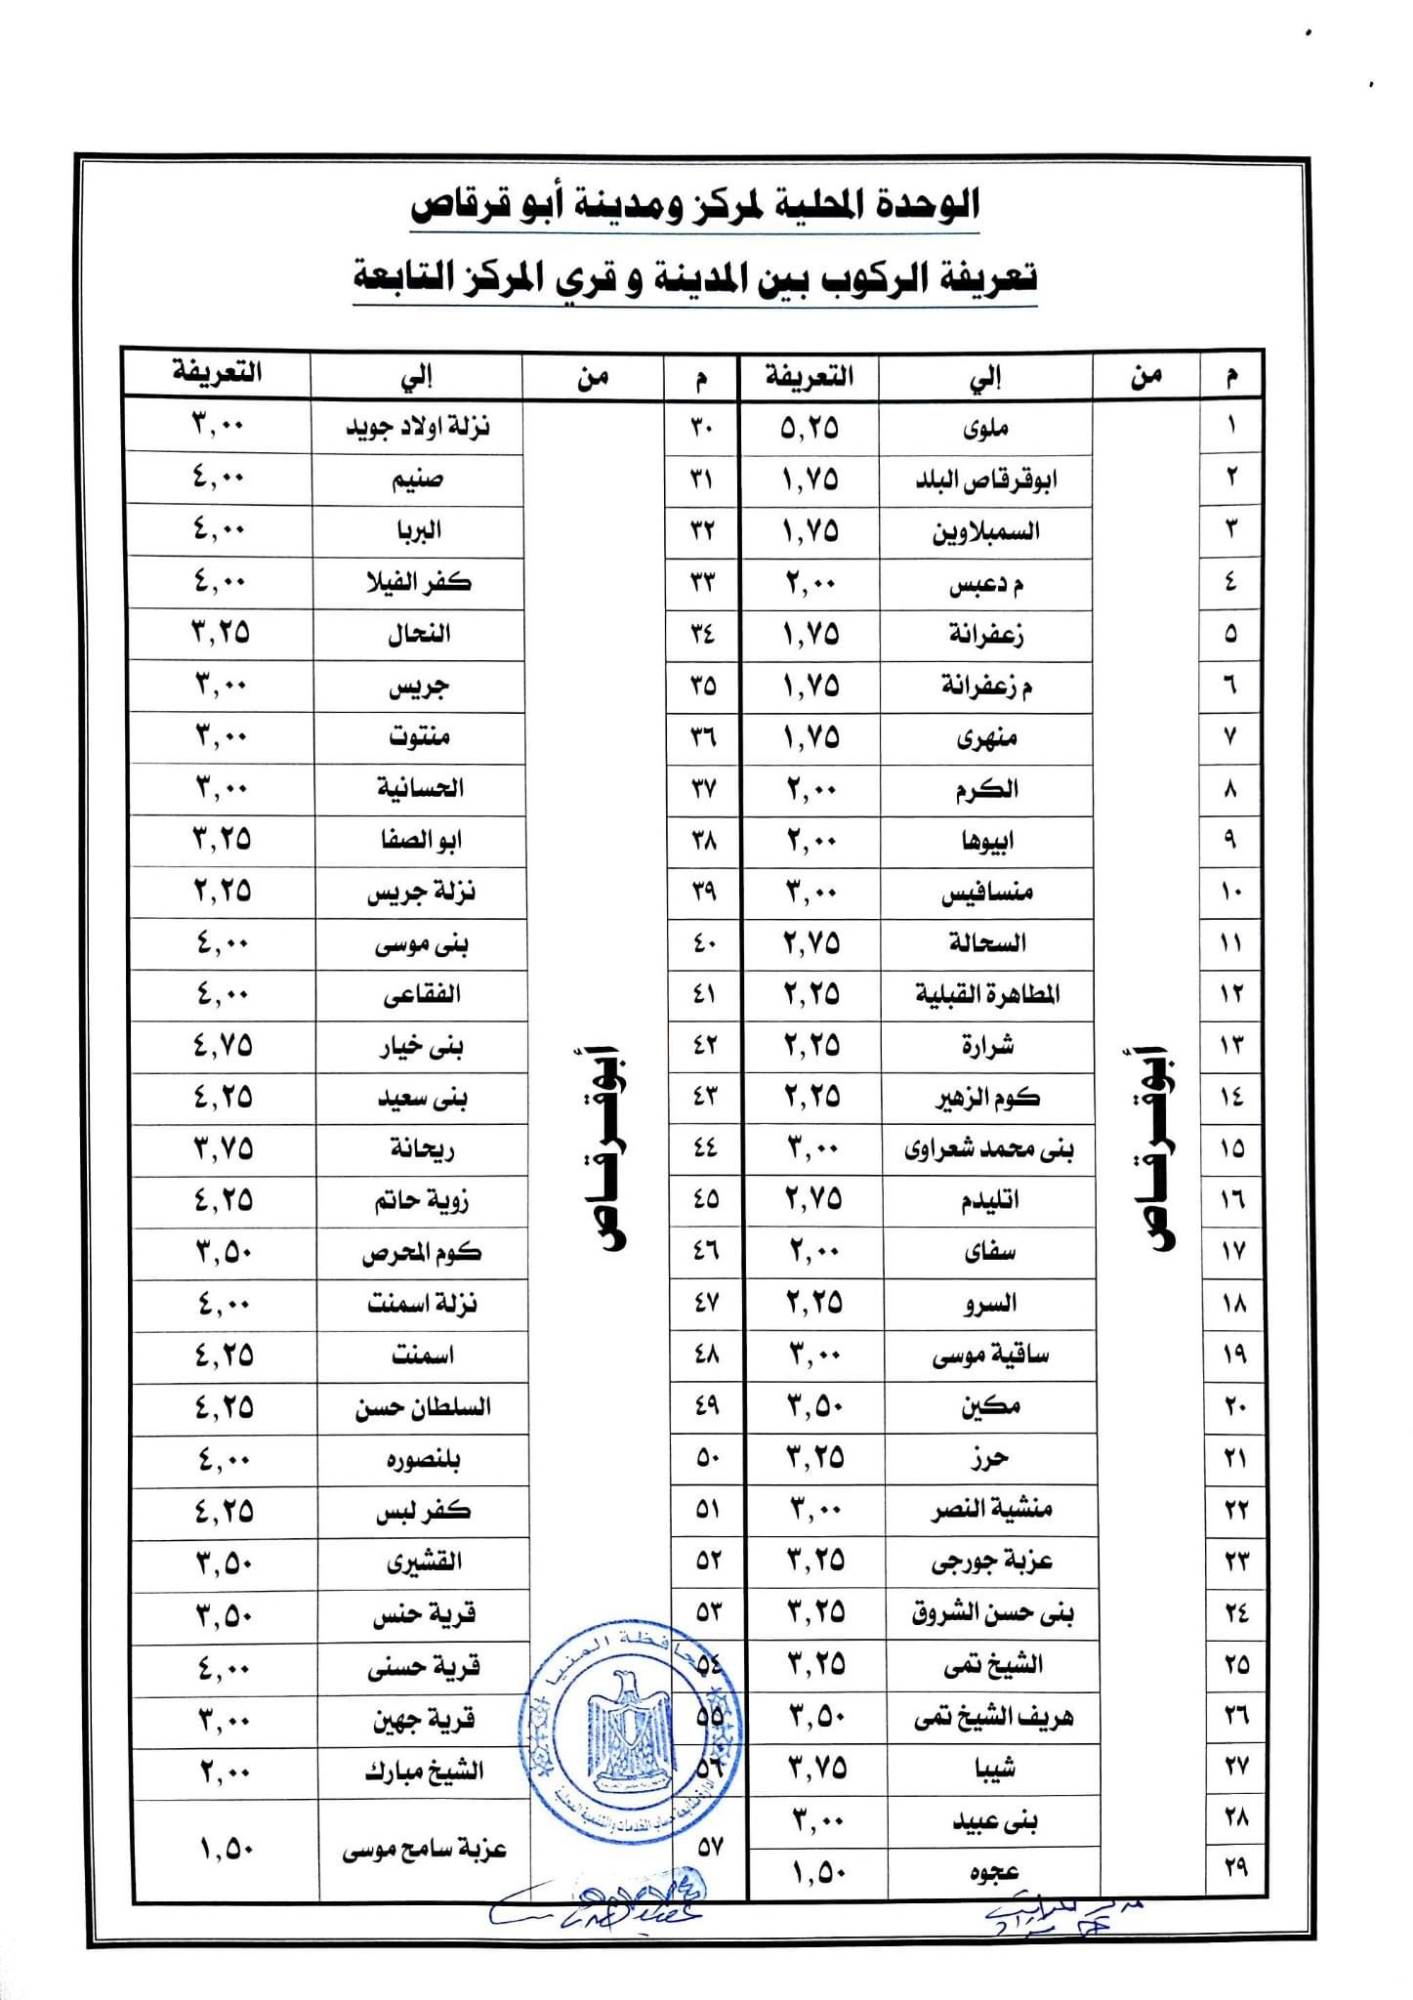 الوحدة المحلية لمركز ومدينة أبو قرقاص
تعريفة الركوب بين المدينة و قري المركز التابعة
م من إلي التعريفة م من إلي التعريفة
١ ملوى ٥,٢٥ ٣٠ نزلة اولاد جويد ٣,٠٠
٢ ابوقرقاص البلد ١,٧٥ ٣١ صنيم ٤,٠٠
٣ السمبلاوين ١,٧٥ ٣٢ البربا ٤,٠٠
٤ م دعبس ٢,٠٠ ٣٣ كفر الفيلا ٤,٠٠
٥ زعفرانة ١,٧٥ ٣٤ النحال ٣,٢٥
٦ م زعفرانة ١,٧٥ ٣٥ جريس ٣,٠٠
٧ منهرى ١,٧٥ ٣٦ منتوت ٣,٠٠
٨ الكرم ٢,٠٠ ٣٧ الحسانية ٣,٠٠
٩ ابيوها ٢,٠٠ ٣٨ ابو الصفا ٣,٢٥
١٠ منسافيس ٣,٠٠ ٣٩ نزلة جريس ٢,٢٥
١١ السحالة ٢,٧٥ ٤٠ بنى موسى ٤,٠٠
١٢ المطاهرة القبلية ٢,٢٥ ٤١ الفقاعى ٤,٠٠
١٣ شرارة ٢,٢٥ ٤٢ بنى خيار ٤,٧٥
١٤ كوم الزهير ٢,٢٥ ٤٣ بنى سعيد ٤,٢٥
١٥ أبوقرقاص بنى محمد شعراوى ٣,٠٠ ٤٤ أبوقرقاص ريحانة ٣,٧٥
١٦ اتليدم ٢,٧٥ ٤٥ زوية حاتم ٤,٢٥
١٧ سفاى ٢,٠٠ ٤٦ كوم المحرص ٣,٥٠
١٨ السرو ٢,٢٥ ٤٧ نزلة اسمنت ٤,٠٠
١٩ ساقية موسى ٣,٠٠ ٤٨ اسمنت ٤,٢٥
٢٠ مكين ٣,٥٠ ٤٩ السلطان حسن ٤,٢٥
٢١ حرز ٣,٢٥ ٥٠ بلنصوره ٤,٠٠
٢٢ منشية النصر ٣,٠٠ ٥١ كفر لبس ٤,٢٥
٢٣ عزبة جورجى ٣,٢٥ ٥٢ القشيرى ٣,٥٠
٢٤ بنى حسن الشروق ٣,٢٥ ٥٣ قرية حنس ٣,٥٠
٢٥ الشيخ تمى ٣,٢٥ ٥٤ قرية حسنى ٤,٠٠
٢٦ هريف الشيخ تمى ٣,٥٠ ٥٥ قرية جهين ٣,٠٠
٢٧ شيبا ٣,٧٥ ٥٦ الشيخ مبارك ٢,٠٠
٢٨ بنى عبيد ٣,٠٠ ٥٧ عزبة سامح موسى ١,٥٠
٢٩ عجوه ١,٥٠
محافظة المنيا